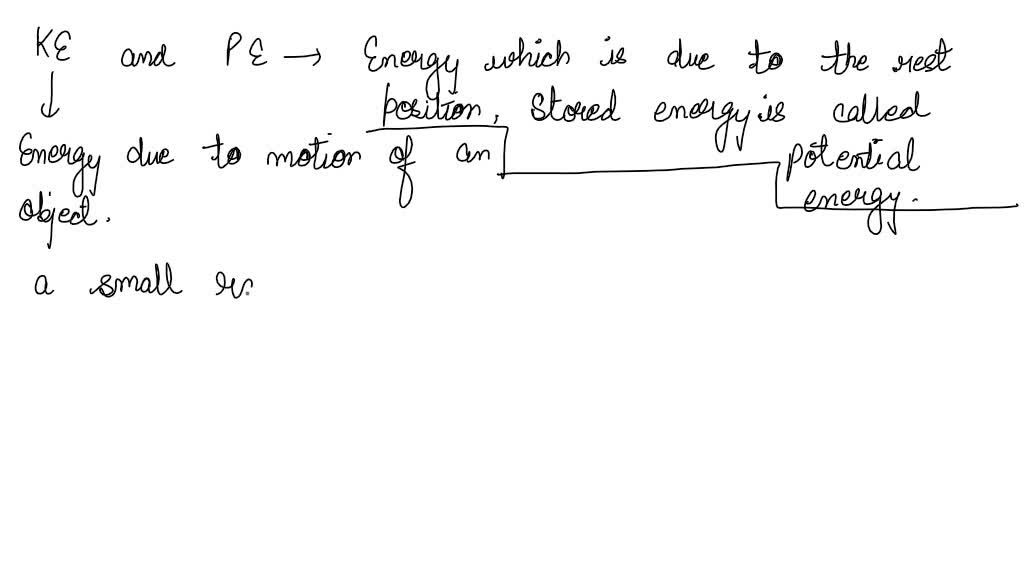 KE and PE → Energy which is due to the rest
position, Stored energy is called
potential
energy.
↓
Energy due to motion of an
object.
a small